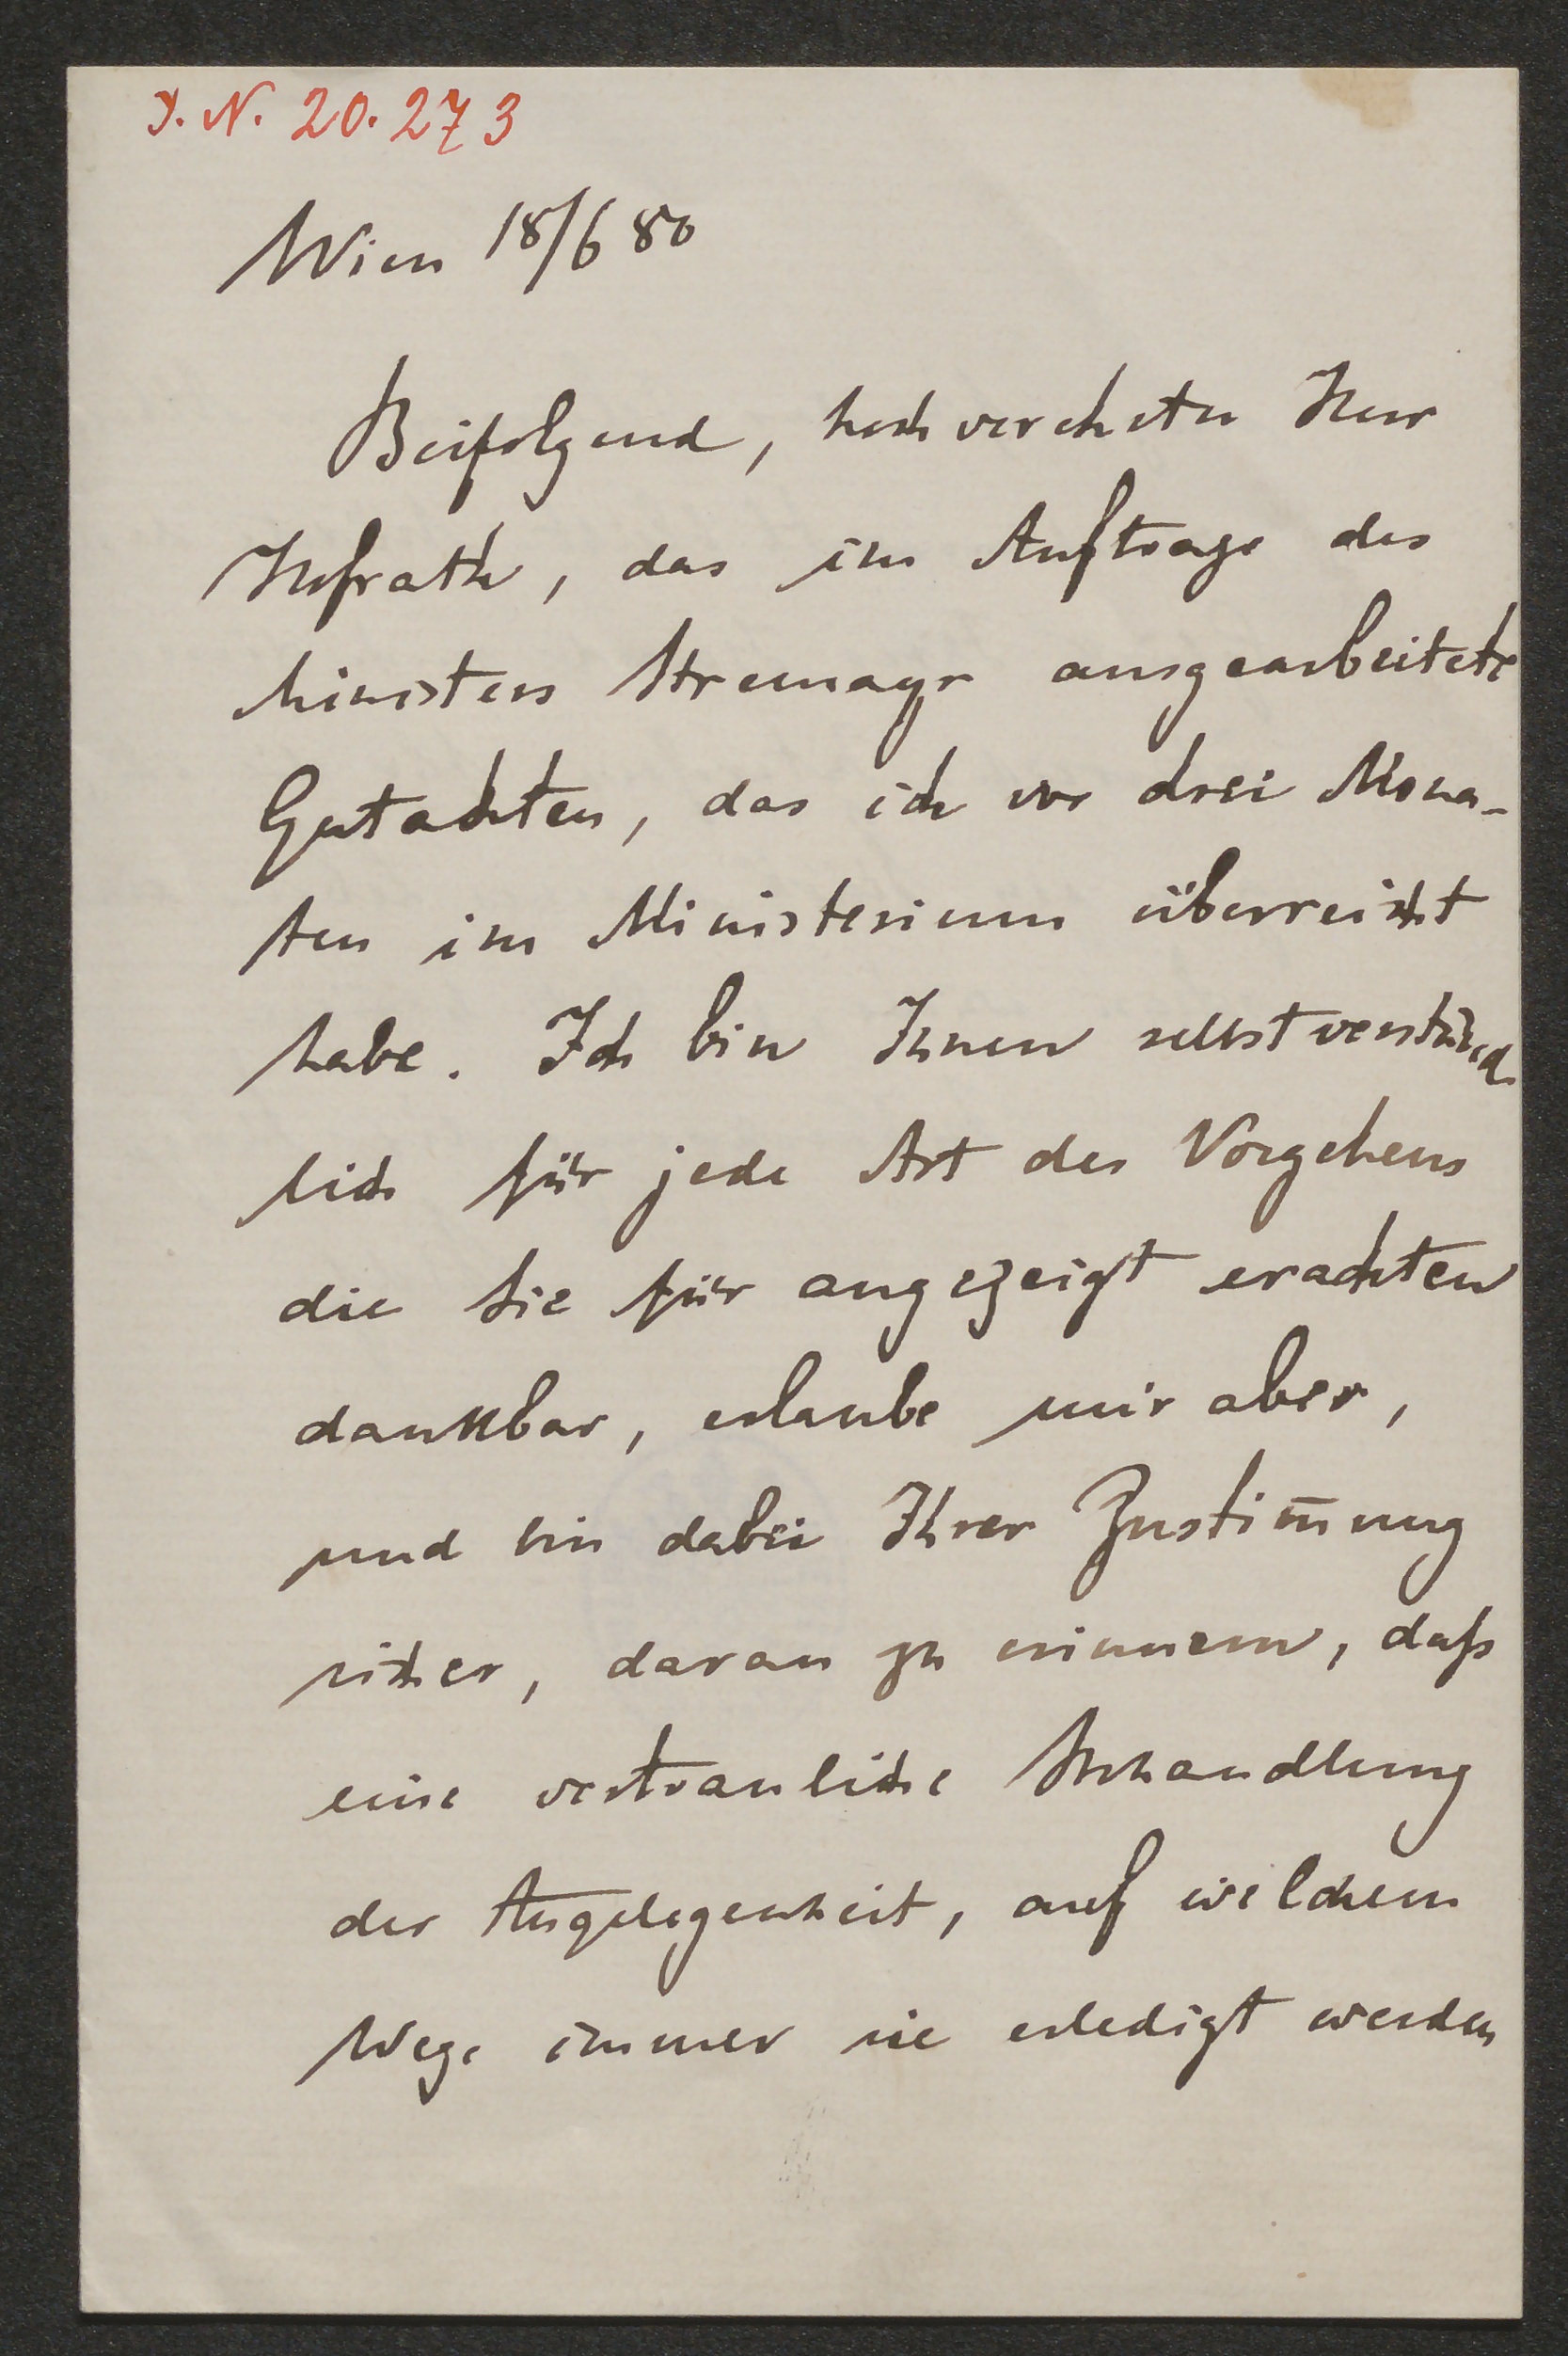 I. N. 20.273
Wien 18/6 80
Beifolgend, hochverehrter Herr
Hofrath, das im Auftrage des
Ministers Stremayr ausgearbeitete
Gutachten, das ich vor drei Mona-
ten im Ministerium überreicht
habe. Ich bin Ihnen selbstverständ
lich für jede Art des Vorgehens
die Sie für angezeigt erachten
dankbar, erlaube mir aber,
und bin dabei Ihrer Zustim̄ung
sicher, daran zu erinnern, daß
eine vertrauliche Behandlung
der Angelegenheit, auf welchem
Wege immer sie erledigt werden